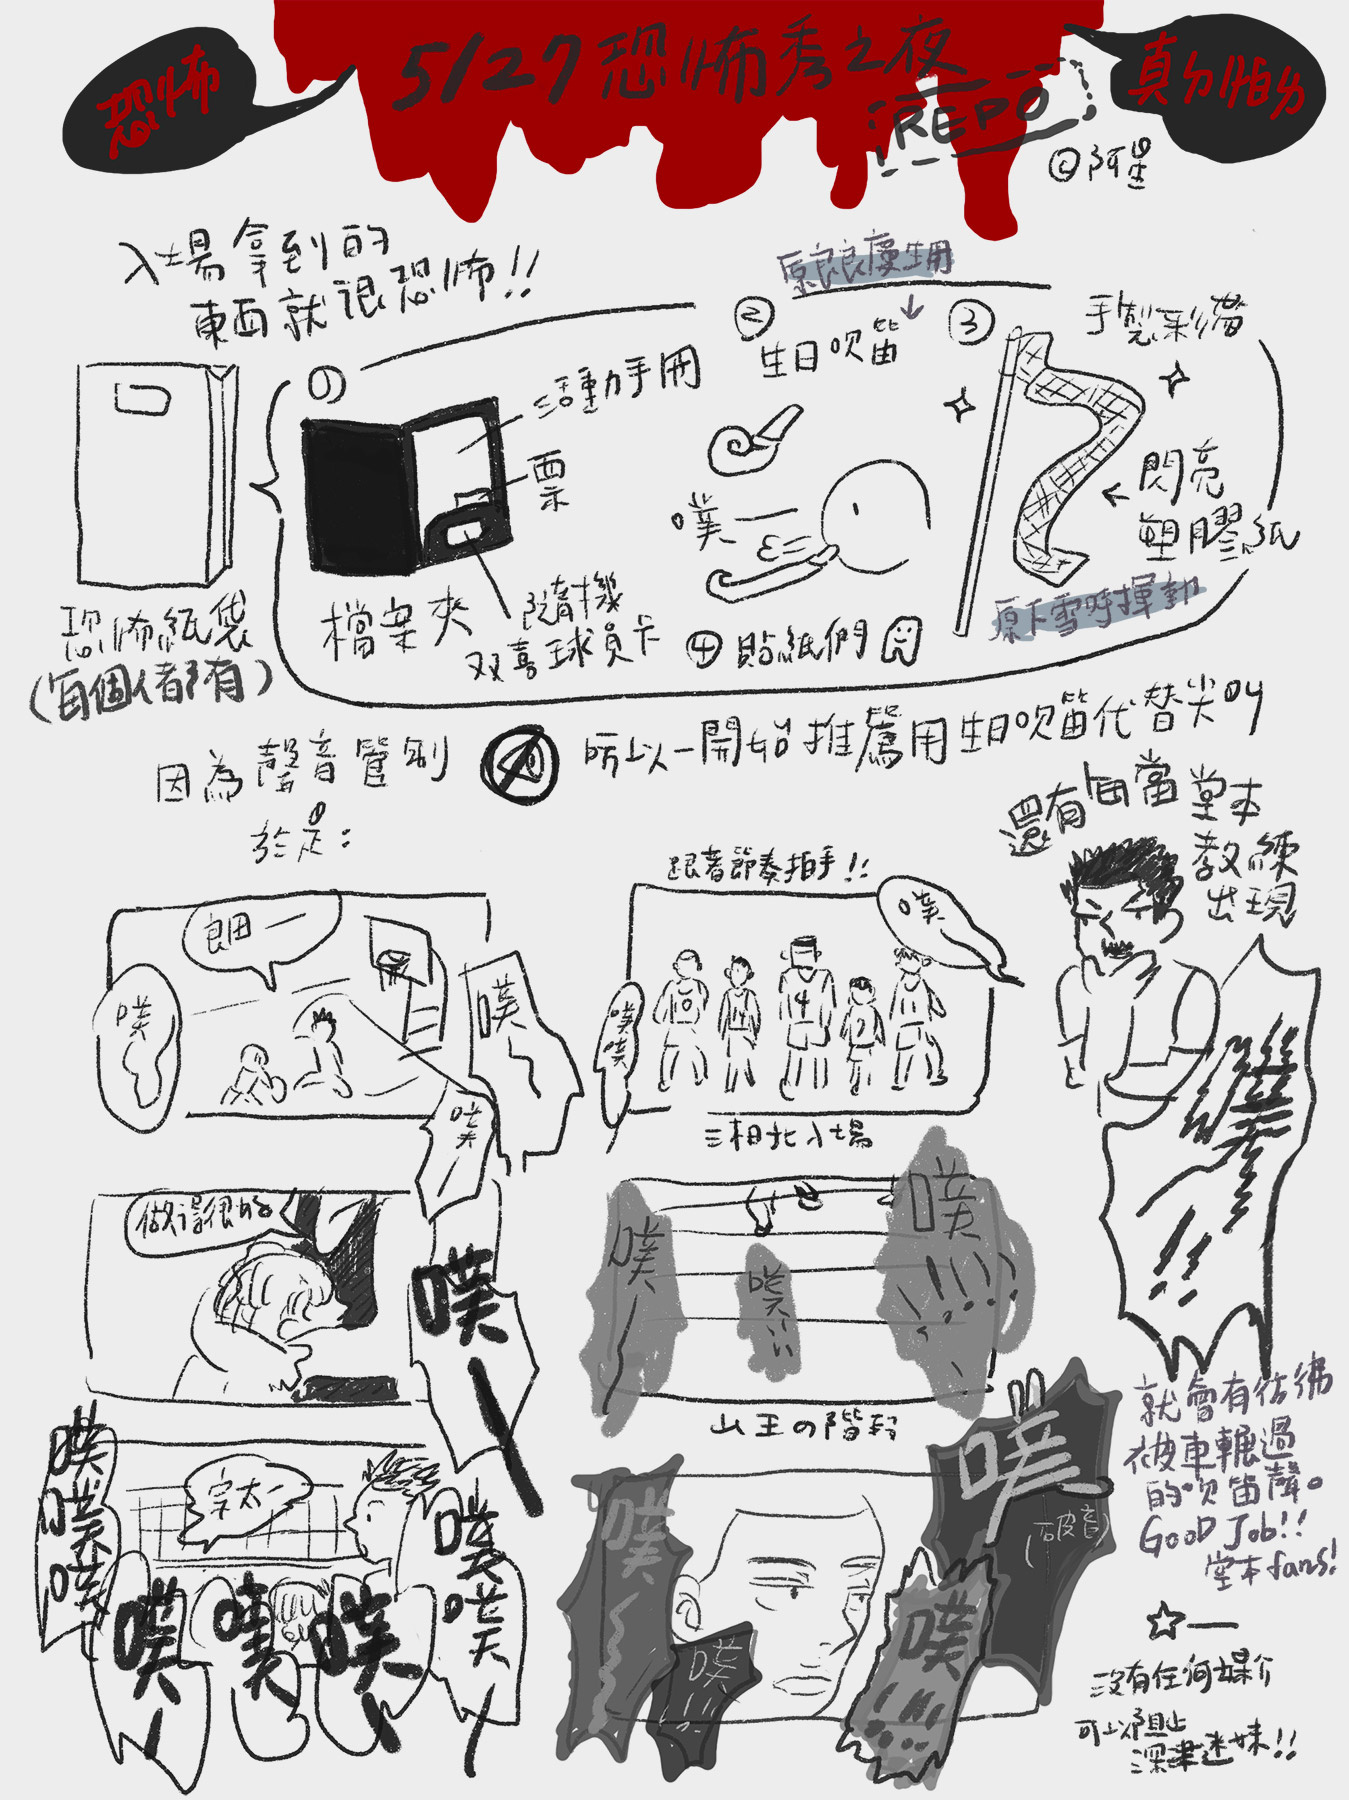 恐怖
5/27恐怖秀之夜
REPO
@阿星
真ㄉ怕ㄉ
入場拿到的
東西就很恐怖!!
恐怖紙袋
(每個人都有)
①
活動手冊
票
檔案夾
隨機
双喜球員卡
原良良慶生用
②
生日吹笛
噗—
③
手製彩帶
閃亮
塑膠紙
原下雪時揮動
④貼紙們
因為聲音管制
所以一開始推薦用生日吹笛代替尖叫
於是:
良田—
噗
噗
噗
跟著節奏拍手!!
噗
噗噗
10
14
4
7
11
三相北入場
還有每當堂本
教練
出現
噗!!
做得很好
噗—
噗—
噗...
噗!!!!
山王の階段
就會有彷彿
被車輾過
的吹笛聲。
GOOD Job!!
堂本fans!
宗太—
噗噗噗
噗—
噗
噗
噗噗—
噗
噗!!
噗
噗!!
(破音)
☆—
沒有任何媒介
可以阻止
深津迷妹!!